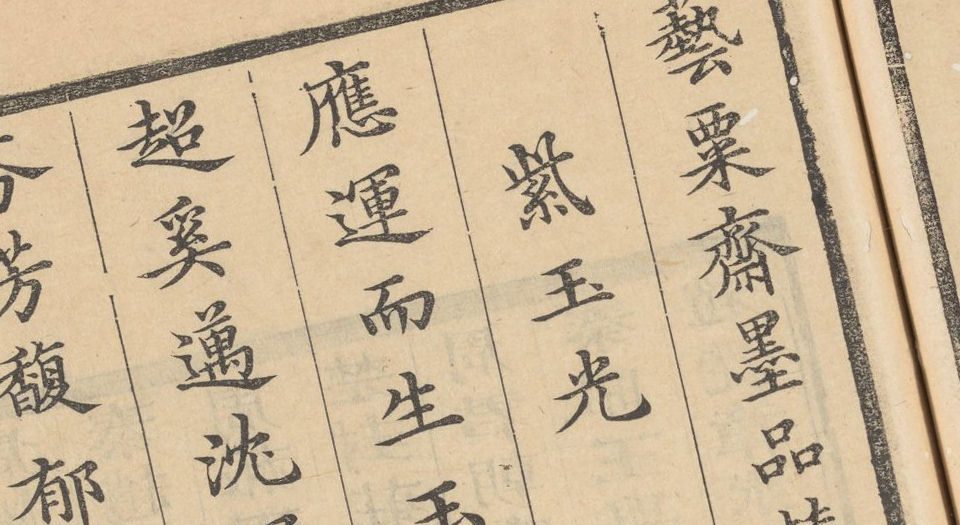 藝粟齋墨品
紫玉光
應運而生玉
超奚邁沈
芬芳馥郁